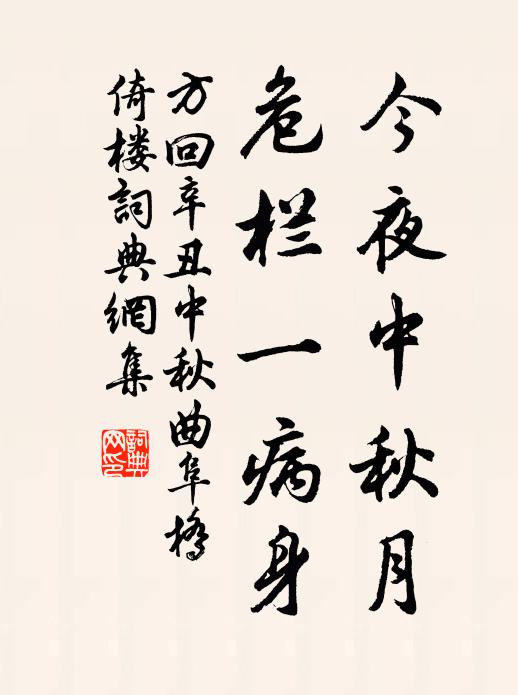 今夜中秋月
危栏一病身
方回辛丑中秋曲阜橋
倚楼詞典網集
詞典网印